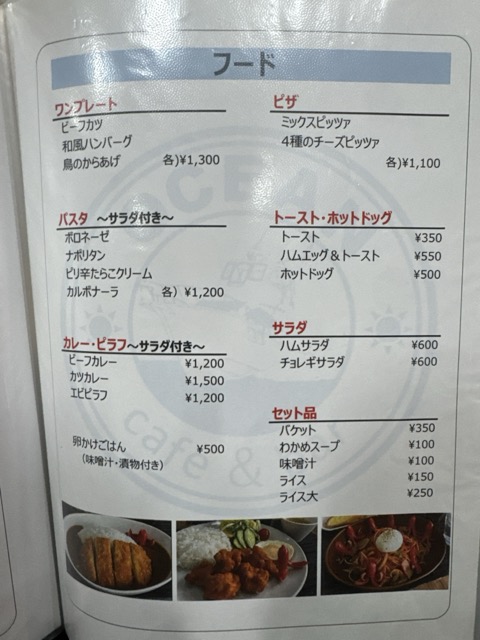 フード
ワンプレート
ビーフカツ
和風ハンバーグ
鳥のからあげ 各)¥1,300
パスタ ～サラダ付き～
ボロネーゼ
ナポリタン
ピリ辛たらこクリーム
カルボナーラ 各）¥1,200
カレー・ピラフ～サラダ付き～
ビーフカレー ¥1,200
カツカレー ¥1,500
エビピラフ ¥1,200
卵かけごはん ¥500
（味噌汁・漬物付き）
ピザ
ミックスピッツァ
４種のチーズピッツァ
各)¥1,100
トースト・ホットドッグ
トースト ¥350
ハムエッグ＆トースト ¥550
ホットドッグ ¥500
サラダ
ハムサラダ ¥600
チョレギサラダ ¥600
セット品
バケット ¥350
わかめスープ ¥100
味噌汁 ¥100
ライス ¥150
ライス大 ¥250
OCEAN
cafe &